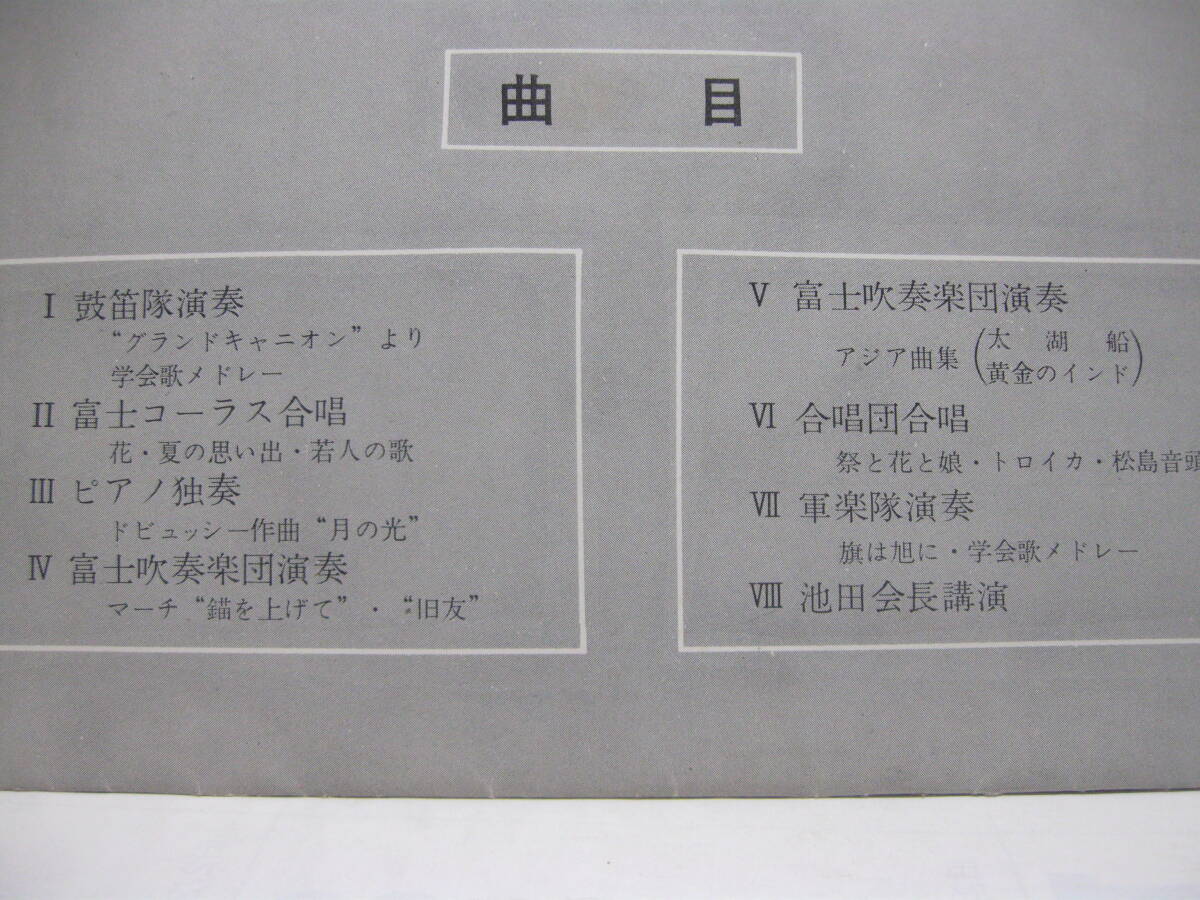 曲目
Ⅰ 鼓笛隊演奏
“グランドキャニオン”より
学会歌メドレー
Ⅱ 富士コーラス合唱
花・夏の思い出・若人の歌
Ⅲ ピアノ独奏
ドビュッシー作曲“月の光”
Ⅳ 富士吹奏楽団演奏
マーチ“錨を上げて”・“旧友”
Ⅴ 富士吹奏楽団演奏
アジア曲集(太湖船
黄金のインド)
Ⅵ 合唱団合唱
祭と花と娘・トロイカ・松島音頭
Ⅶ 軍楽隊演奏
旗は旭に・学会歌メドレー
Ⅷ 池田会長講演